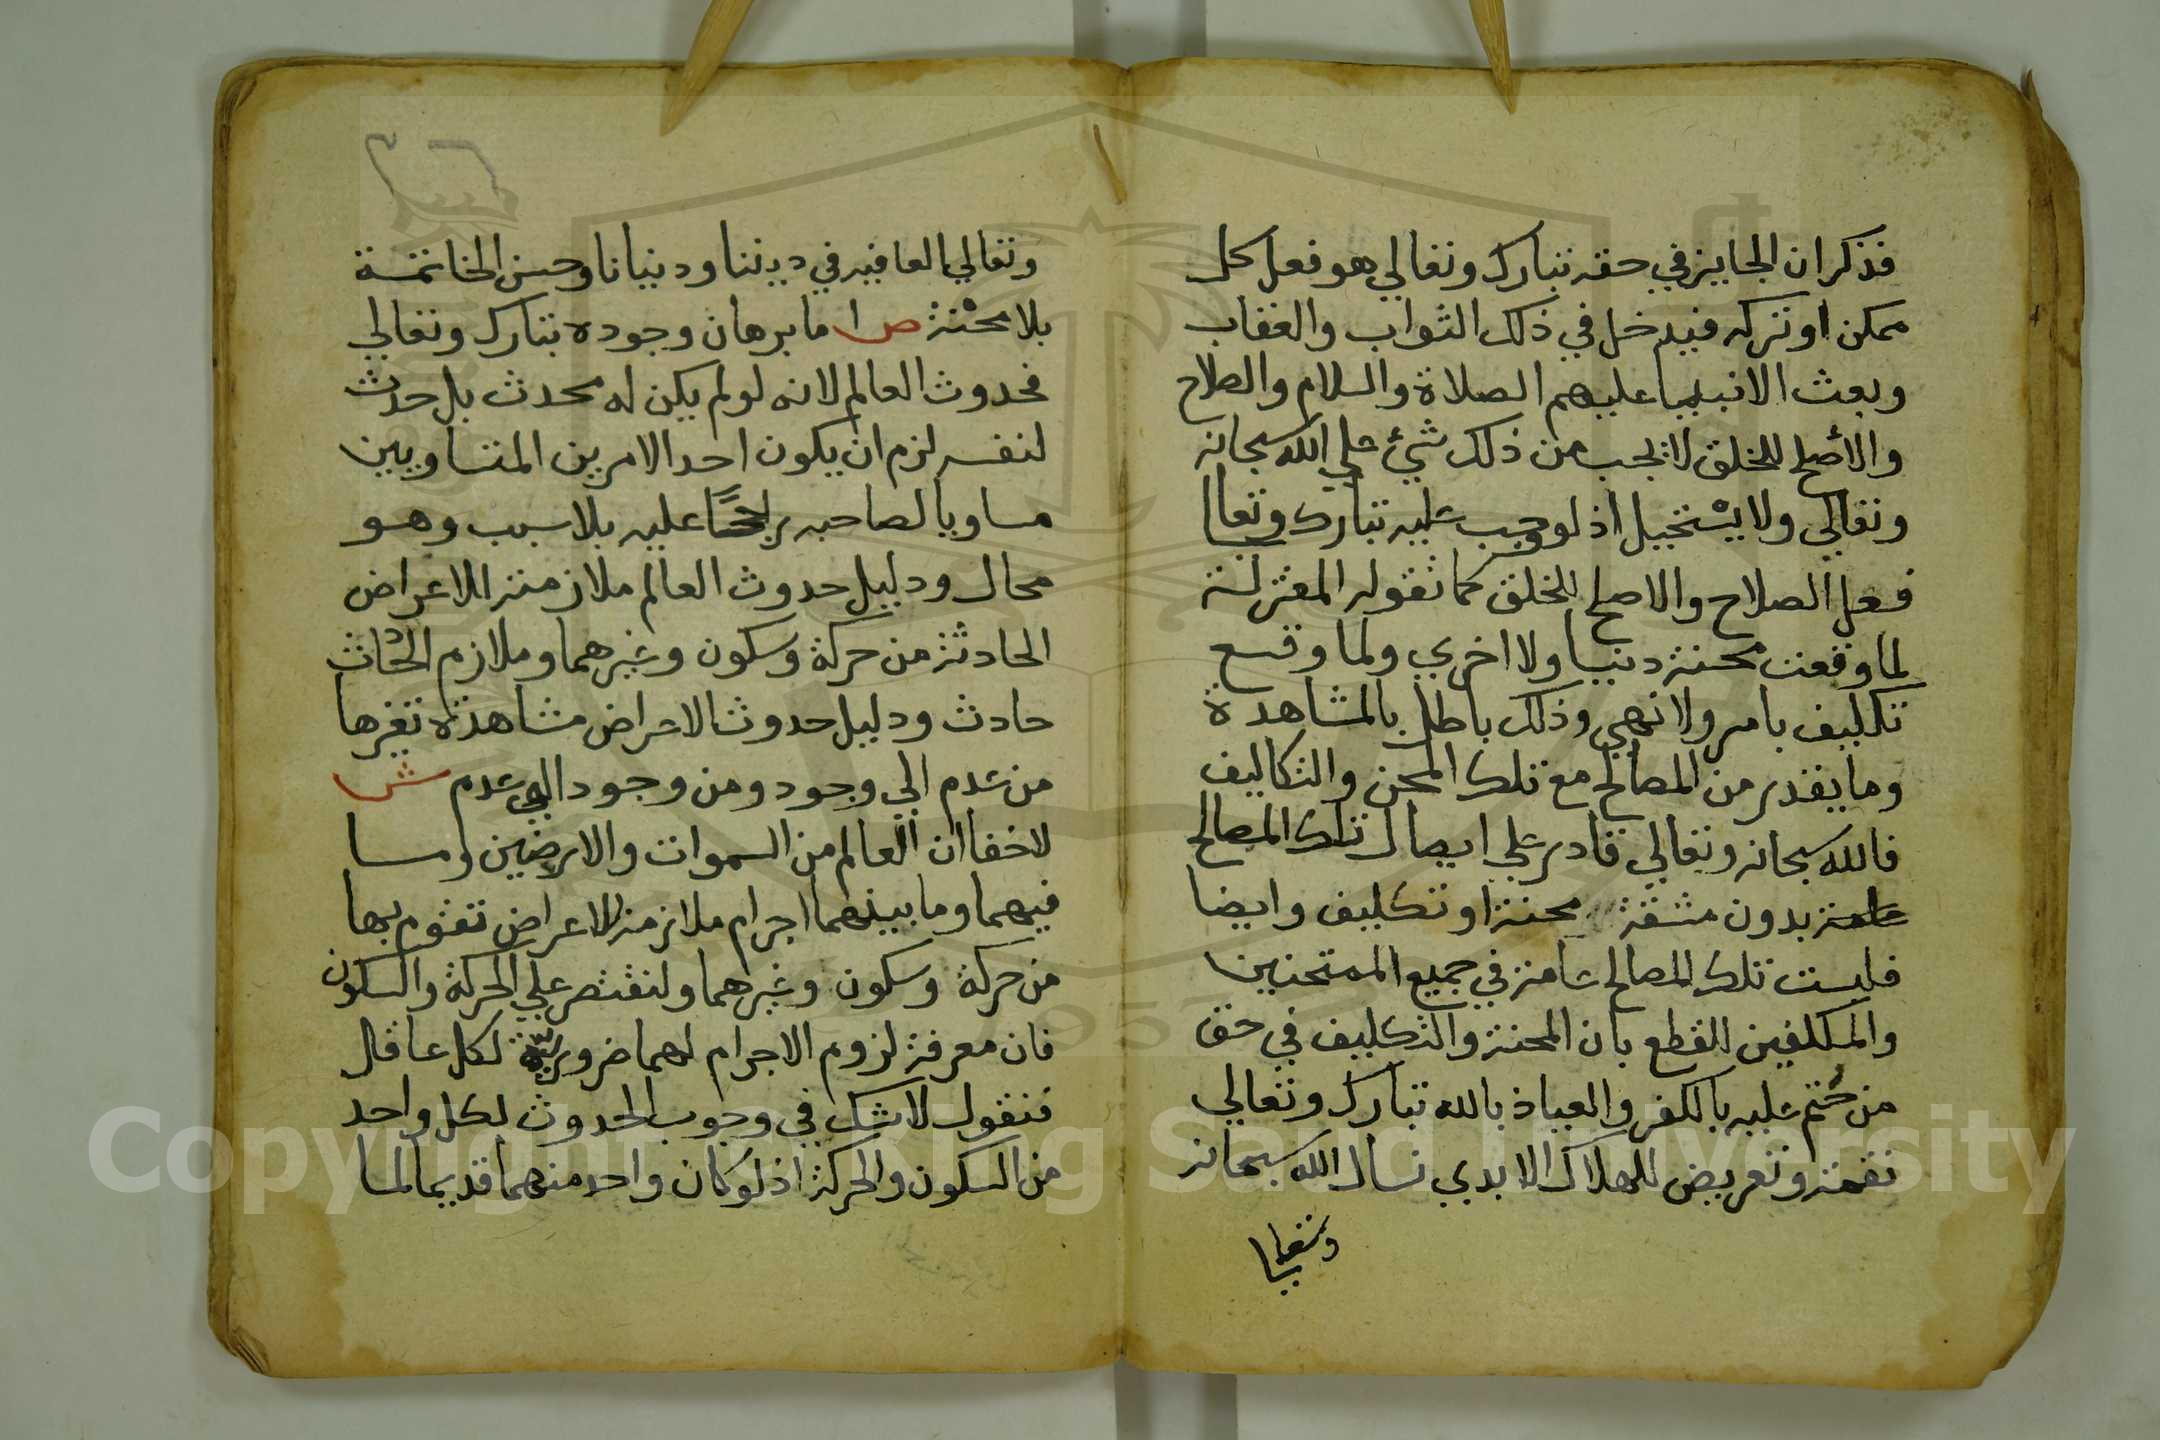 فذكر ان الجايز في حقه تبارك وتعالي هو فعل كل
ممكن او تركه فيدخل في ذلك الثواب والعقاب
وبعث الانبيا عليهم الصلاة والسلام والصلاح
والأصلح للخلق لا يجب من ذلك شيئ علي الله سبحانه
وتعالي ولا يستحيل اذ لو وجب عليه تبارك وتعالي
فعل الصلاح والاصلح للخلق كما تقوله المعتزلة
لما وقعت محنة دنيا ولا اخري ولما وقع
تكليف بامر ولا نهي وذلك باطل بالمشاهدة
وما يقدر من المصالح مع تلك المحن والتكاليف
فالله سبحانه وتعالي قادر علي ايصال تلك المصالح
بدون مشقة محنة او تكليف وايضا
فليست تلك المصالح عامة في جميع الممتحنين
والمكلفين للقطع بان المحنة والتكليف في حق
من ختم عليه بالكفر والعياذ بالله تبارك وتعالي
نقمة وتعريض للهلاك الابدي نسال الله سبحانه
وتعالي
وتعالي العافيه في ديننا ودنيانا وحسن الخاتمة
بلا محنة ص ا ما برهان وجوده تبارك وتعالي
فحدوث العالم لانه لو لم يكن له محدث بل حدث
لنفسه لزم ان يكون احد الامرين المتساويين
مساويا لصاحبه راجحًا عليه بلا سبب وهو
محال ودليل حدوث العالم ملازمته للاعراض
الحادثة من حركة وسكون وغيرهما وملازم الحادث
حادث ودليل حدوث الاعراض مشاهدة تغيرها
من عدم الي وجود ومن وجود الي عدم ش
لا خفا ان العالم من السموات والارضين وما
فيهما وما بينهما اجرام ملازمة للاعراض تقوم بها
من حركة وسكون وغيرهما ولنقتصر علي الحركة والسكون
فان معرفة لزوم الاجرام لهما ضرورية لكل عاقل
فنقول لا شك في وجوب الحدوث لكل واحد
من السكون والحركة اذ لو كان واحد منهما قديما لما
Copyright © King Saud University